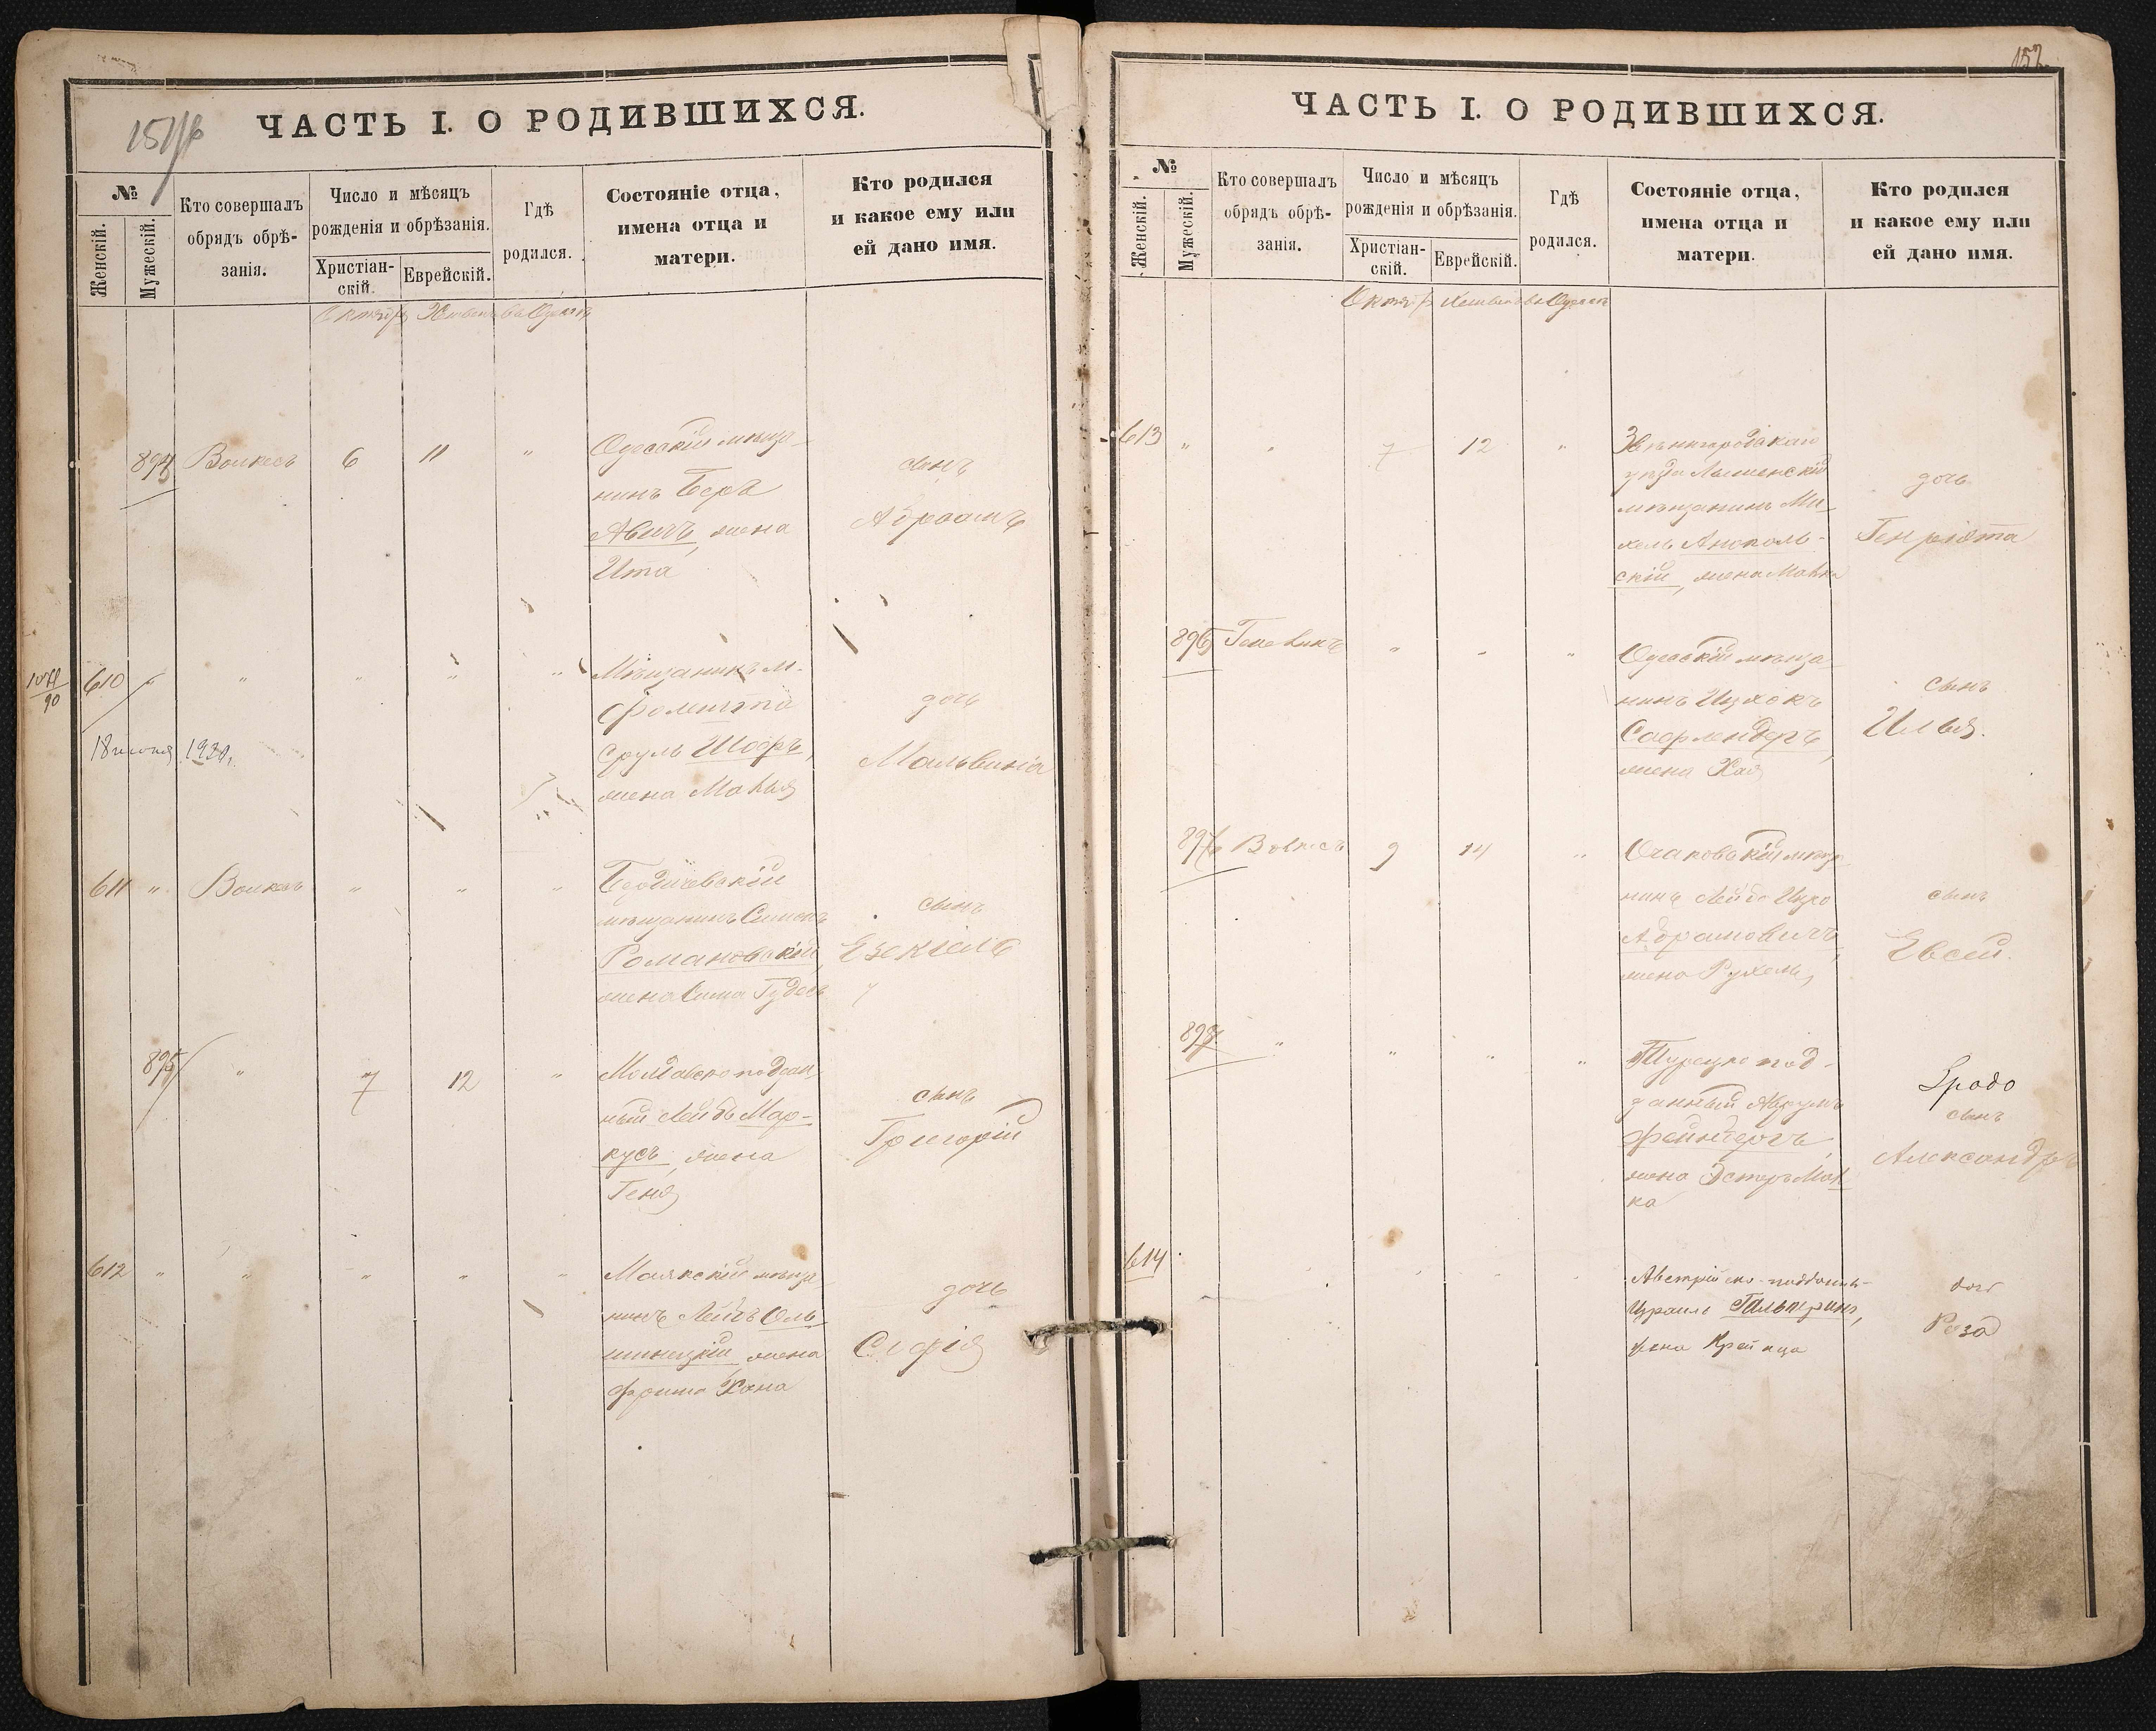 151
ЧАСТЬ I. О РОДИВШИХСЯ.
№
Женскій.
Мужескій.
Кто совершалъ
обрядъ обрѣ-
занія.
Число и мѣсяцъ
рожденія и обрѣзанія.
Христіан-
скій.
Еврейскій.
Гдѣ
родился.
Состояніе отца,
имена отца и
матери.
Кто родился
и какое ему или
ей дано имя.
894 Волкесъ 6 11 "
Одесскій мѣща-
нинъ Беръ
Авичъ, жена
Ита
сынъ
Абраамъ
610 " " " " "
18 1930
Мѣщанинъ м.
Сруль Шофръ,
жена Малья
дочь
Мальвина
611 " Волкесъ " " "
Бердичевскій
мѣщанинъ Симонъ
Романовскій,
жена Сима Гудесъ
сынъ
Езекіель
895 " 7 12 "
Молдавскоподдан-
ный Лейбъ Мар-
кусъ, жена
Геня
сынъ
Григорій
612 " " " " "
Маякскій мѣща-
нинъ Лейбъ Оль-
шинецкій, жена
Фрима Хана
дочь
Софія
152
ЧАСТЬ I. О РОДИВШИХСЯ.
№
Женскій.
Мужескій.
Кто совершалъ
обрядъ обрѣ-
занія.
Число и мѣсяцъ
рожденія и обрѣзанія.
Христіан-
скій.
Еврейскій.
Гдѣ
родился.
Состояніе отца,
имена отца и
матери.
Кто родился
и какое ему или
ей дано имя.
613 " " 7 12 "
Звѣнигородскаго
уѣзда
мѣщанинъ Ми-
хель Анополь-
скій, жена Малка
дочь
Генріэта
896 " " "
Одесскій мѣща-
нинъ Ицхокъ
жена Хая
сынъ
Илья.
897 Волкесъ 9 14 "
Очаковскій мѣща-
нинъ Лейба Ицко
Абрамовичъ,
жена Рухель
сынъ
Евсей.
898 " " " "
Турецко под-
данный Аврумъ
Фейнбергъ,
жена Эстеръ Мал-
ка
сынъ
Александръ
614
Австрійско-подданн-
Израиль Гальперинъ,
жена Крейнца
дочь
Роза